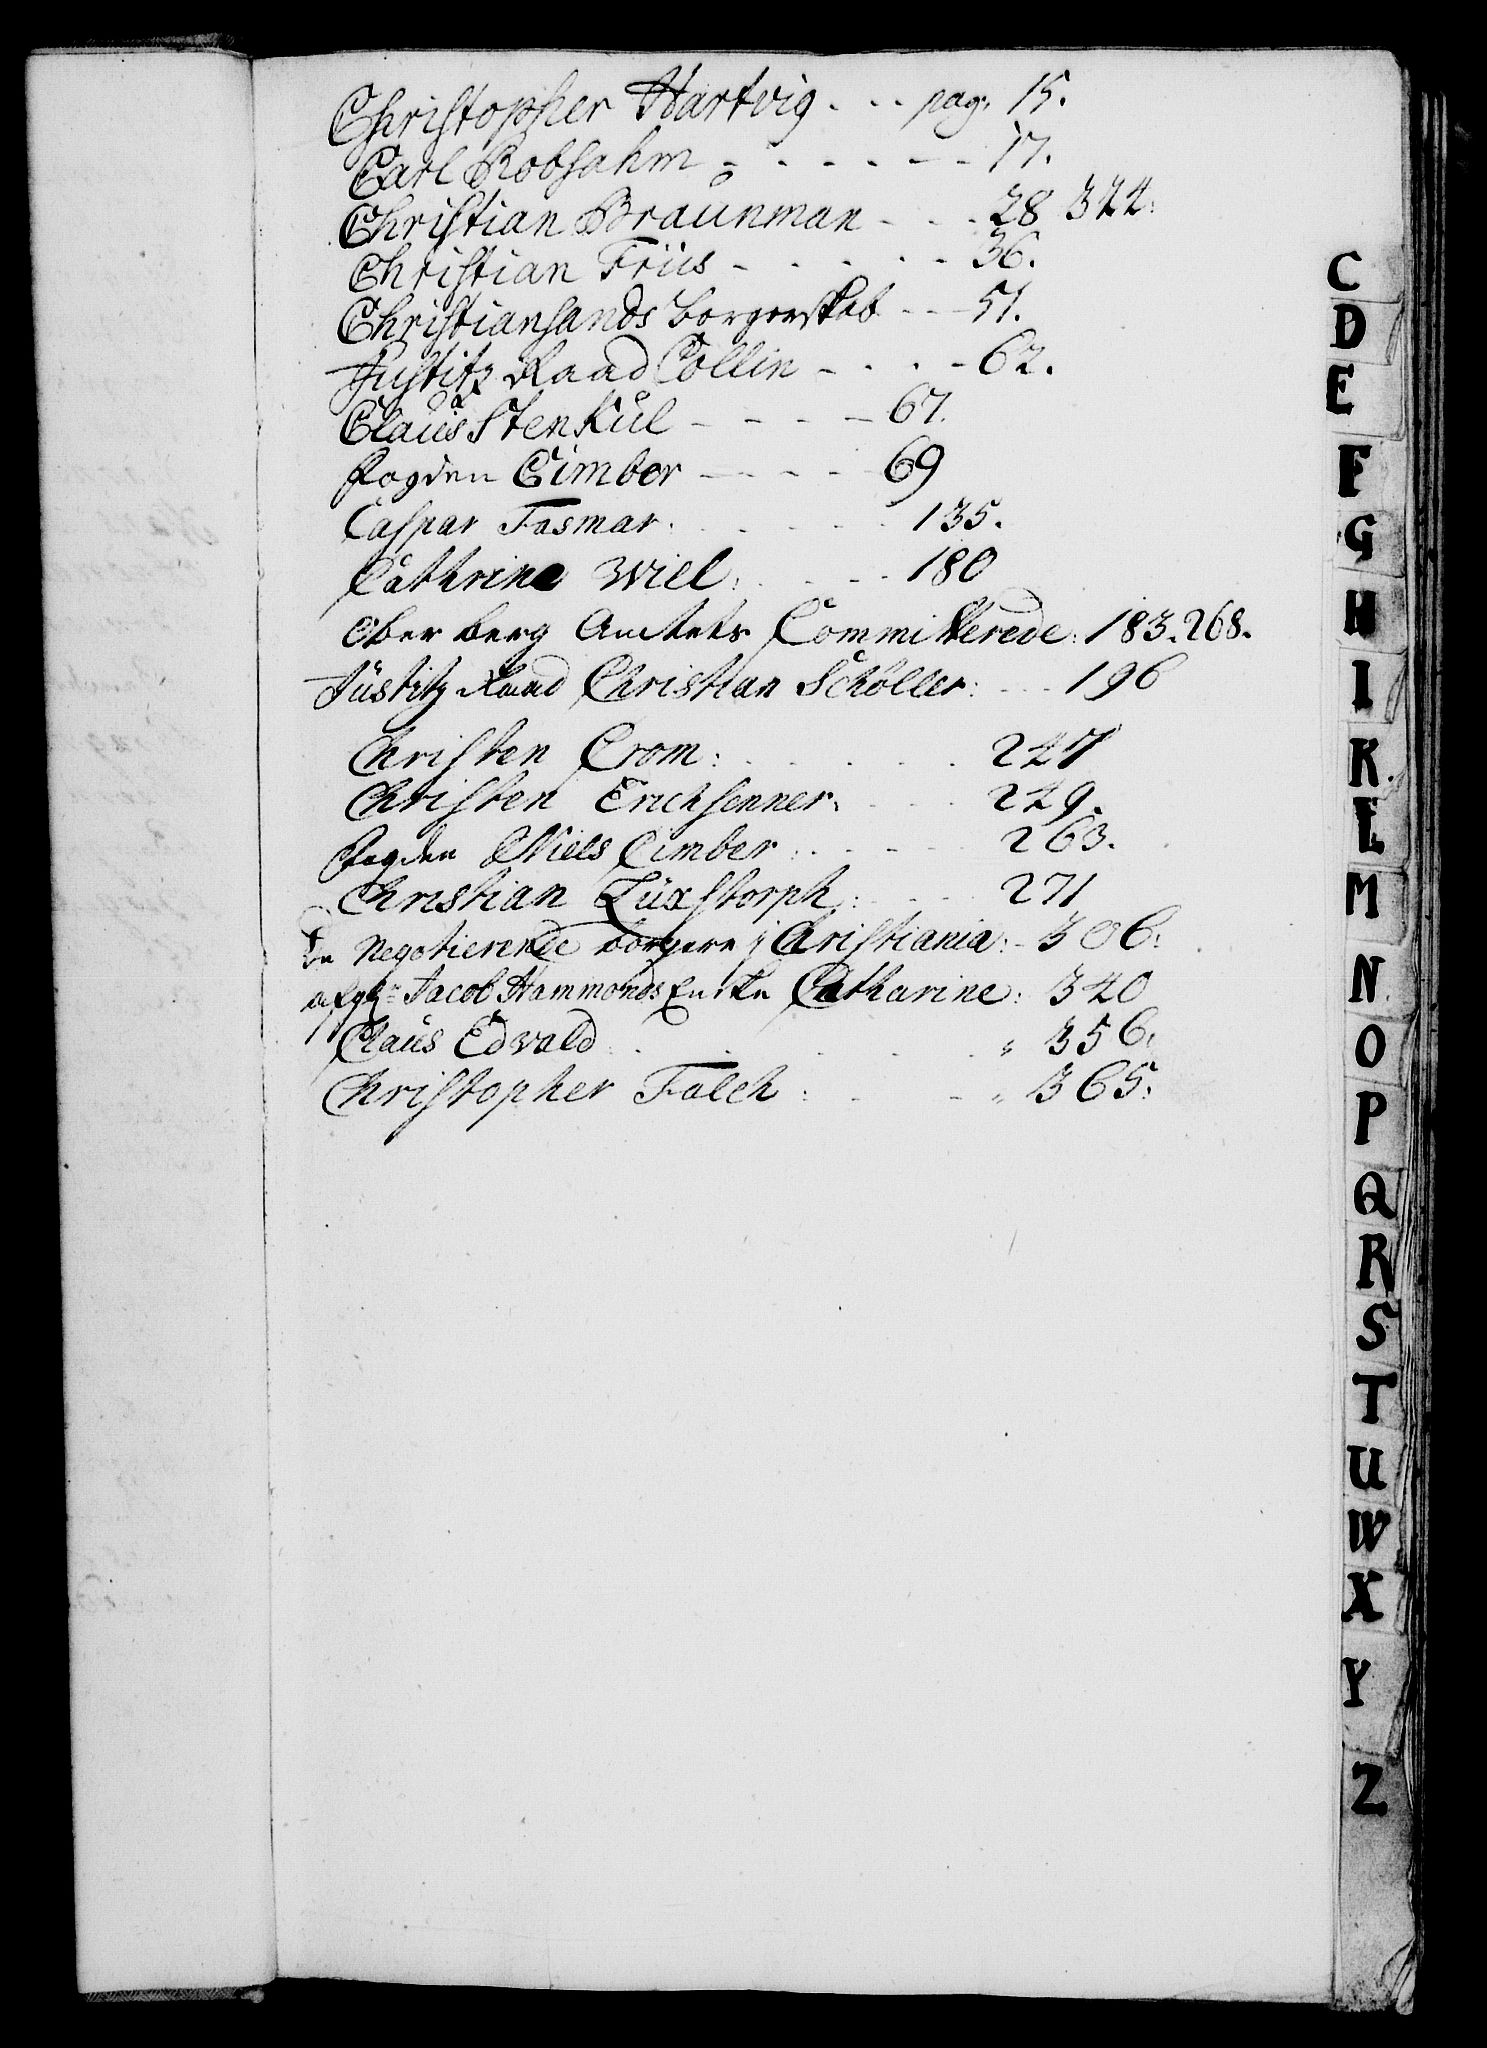 Christopher Hartvig - - - pag: 15.
Carl Robsahm - - - - - - 17.
Christian Braünman - - - 28 344:
Christian Friis - - - - - 36.
Christiansands borgerskab - - - 51.
Justitz Raad Collin - - - - 62.
Claüs Stenkül - - - - 67.
fogden Cimber - - - - 69
Caspar Fasmar. - - - - 135.
Cathrine Wiel: - - - - 180
Ober berg Amtets Committerede: 183. 268.
Jüstitz Raad Christian Schøller: - - - 196
Christen Crom: - - - - - 247
Christen Erichsenner: - - - 249.
fogden Niels Cimber: - - - - 263.
Christian Lüxstorph: - - - 271
De Negotierende borgere i Christiania: - 306:
afg: Jacob Hammonds Encke Catharine: 340
Claüs Edvald - - - - - " 356:
Christopher Falch: - - - " 365:
C
D
E
F
G
H
I
K
L
M
N
O
P
Q
R
S
T
U
W
X
Y
Z